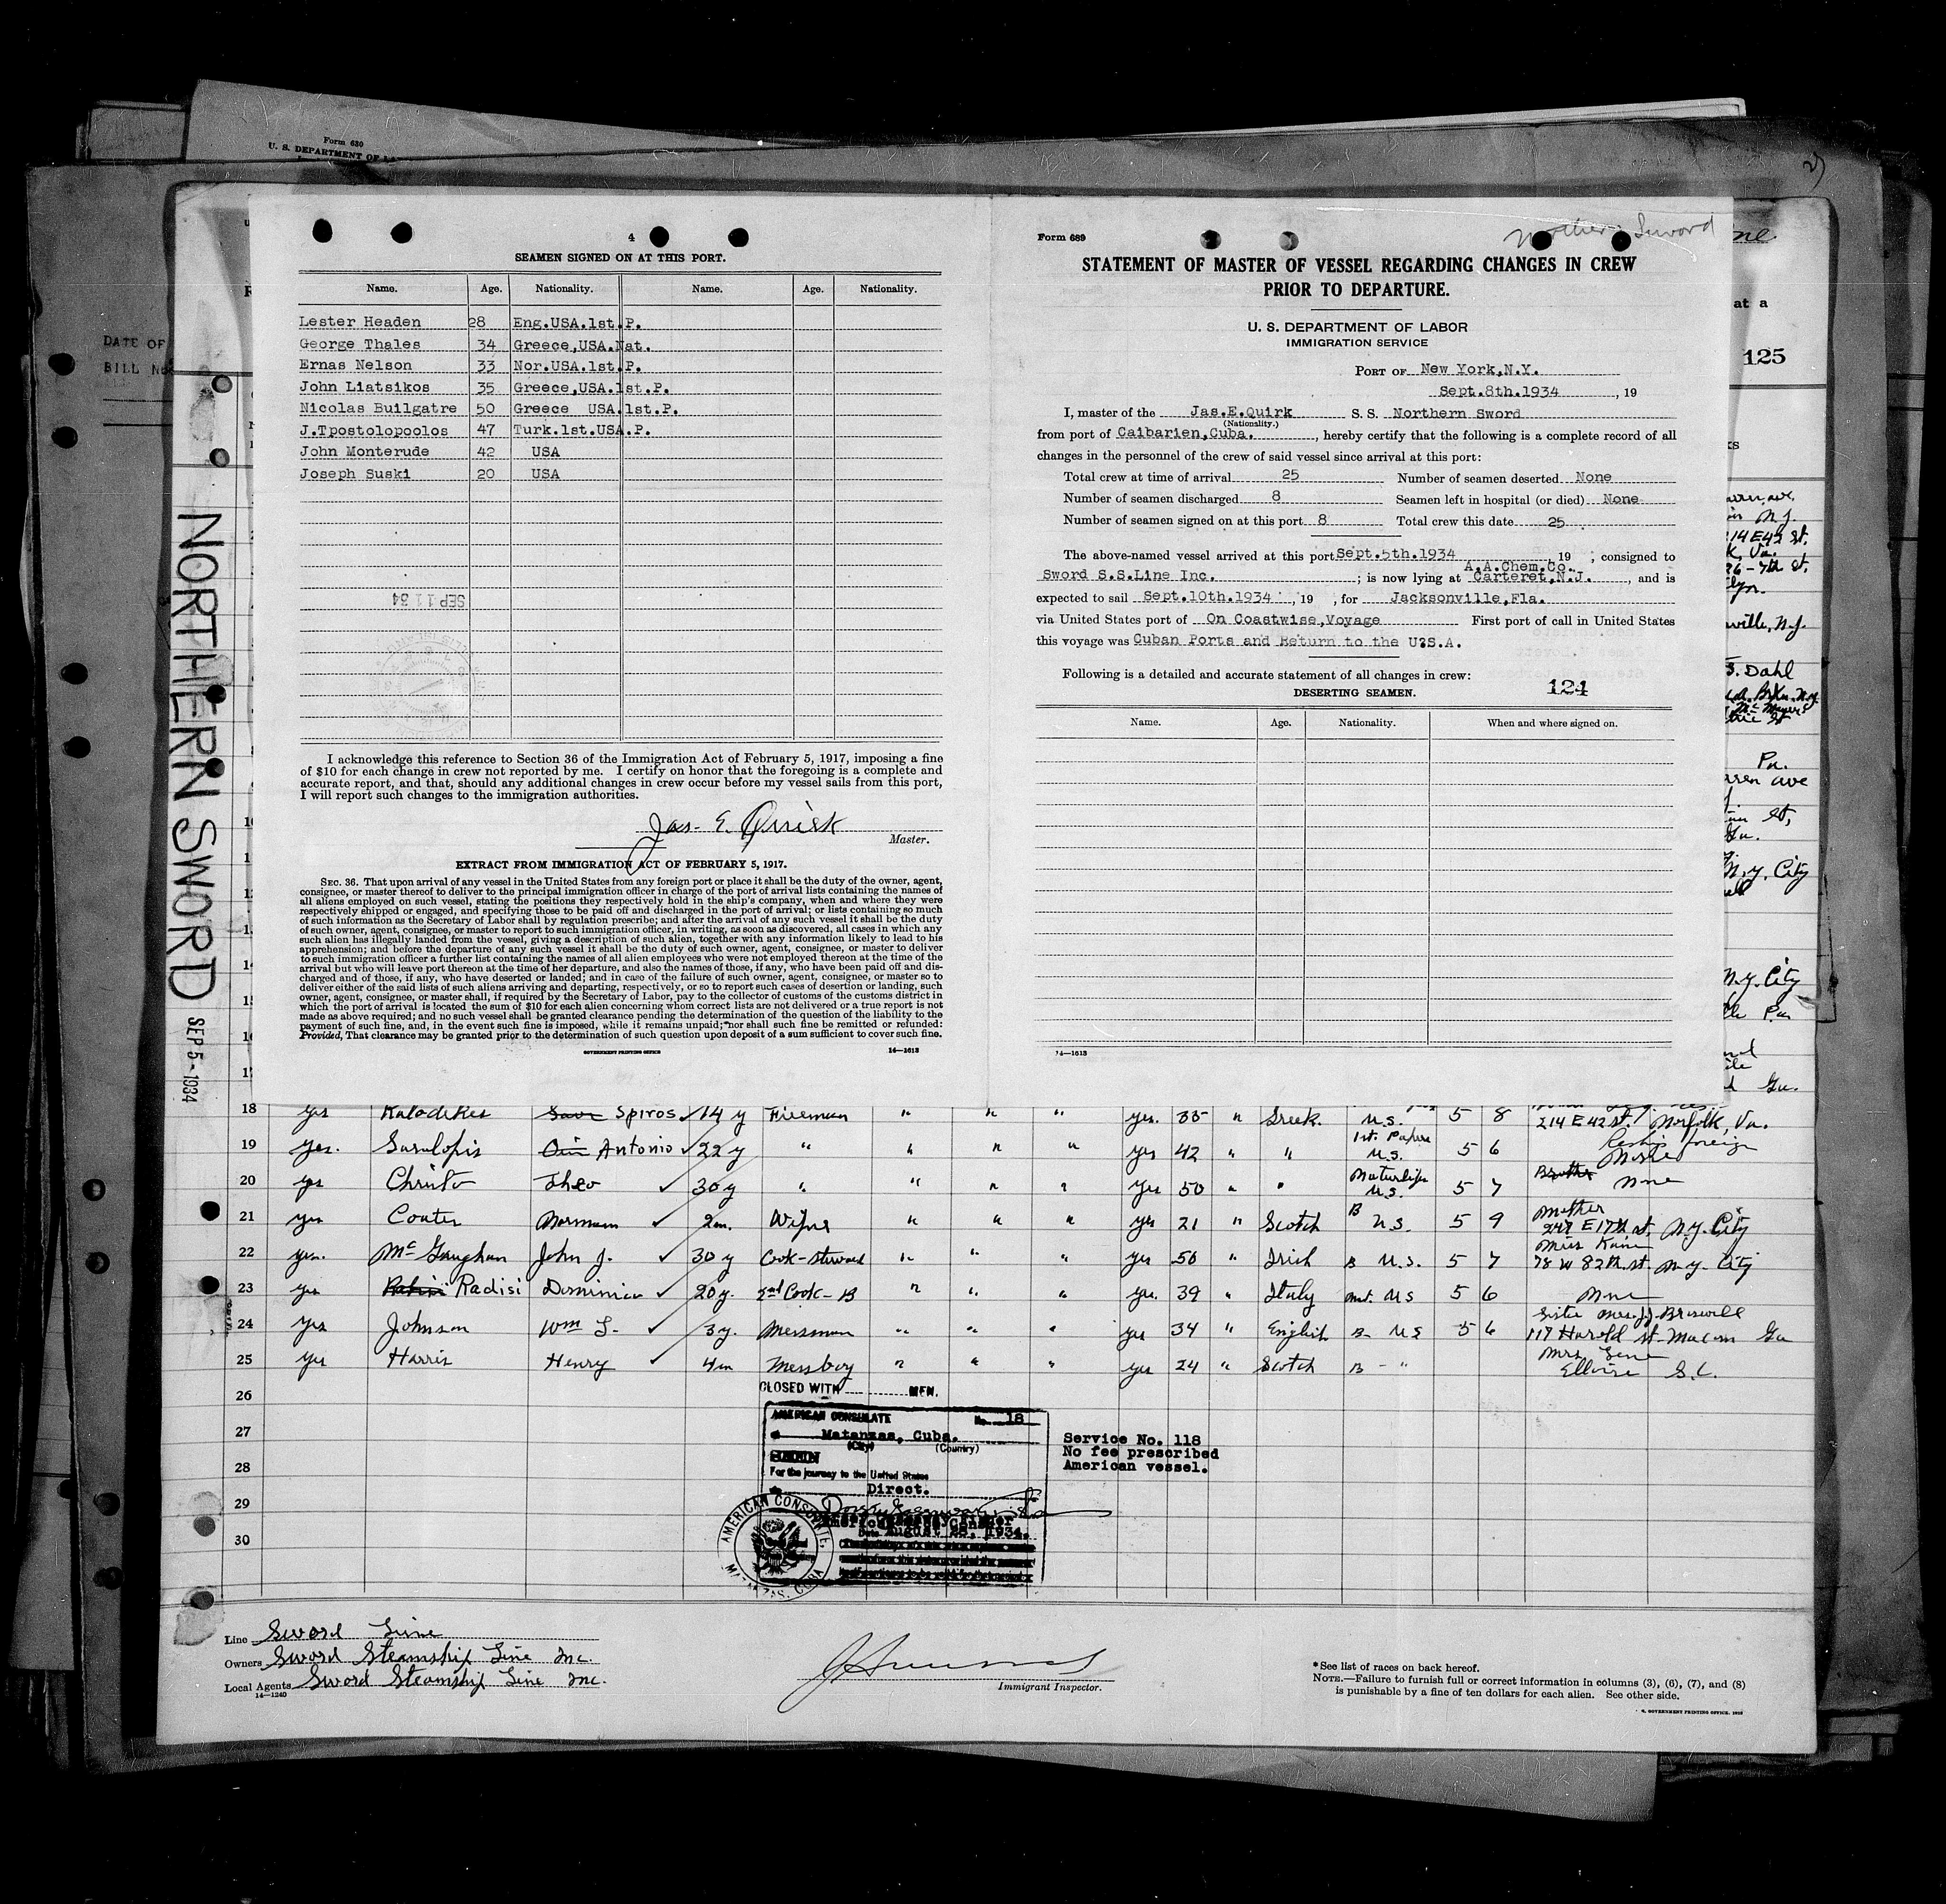 Form 630
U. S. DEPARTMENT OF
DATE OF
BILL No
2)
4
SEAMEN SIGNED ON AT THIS PORT.
Name. Age. Nationality. Name. Age. Nationality.
Lester Headen 28 Eng.USA.1st.P.
George Thales 34 Greece,USA.Nat.
Ernas Nelson 33 Nor.USA.1st.P.
John Liatsikos 35 Greece,USA.1st.P.
Nicolas Builgatre 50 Greece USA.1st.P.
J.Tpostolopoolos 47 Turk.1st.USA.P.
John Monterude 42 USA
Joseph Suski 20 USA
SEP 11 34
I acknowledge this reference to Section 36 of the Immigration Act of February 5, 1917, imposing a fine
of $10 for each change in crew not reported by me. I certify on honor that the foregoing is a complete and
accurate report, and that, should any additional changes in crew occur before my vessel sails from this port,
I will report such changes to the immigration authorities.
Jas. E. Quirk
Master.
EXTRACT FROM IMMIGRATION ACT OF FEBRUARY 5, 1917.
SEC. 36. That upon arrival of any vessel in the United States from any foreign port or place it shall be the duty of the owner, agent,
consignee, or master thereof to deliver to the principal immigration officer in charge of the port of arrival lists containing the names of
all aliens employed on such vessel, stating the positions they respectively hold in the ship's company, when and where they were
respectively shipped or engaged, and specifying those to be paid off and discharged in the port of arrival; or lists containing so much
of such information as the Secretary of Labor shall by regulation prescribe; and after the arrival of any such vessel it shall be the duty
of such owner, agent, consignee, or master to report to such immigration officer, in writing, as soon as discovered, all cases in which any
such alien has illegally landed from the vessel, giving a description of such alien, together with any information likely to lead to his
apprehension; and before the departure of any such vessel it shall be the duty of such owner, agent, consignee, or master to deliver
to such immigration officer a further list containing the names of all alien employees who were not employed thereon at the time of the
arrival but who will leave port thereon at the time of her departure, and also the names of those, if any, who have been paid off and dis-
charged and of those, if any, who have deserted or landed; and in case of the failure of such owner, agent, consignee, or master so to
deliver either of the said lists of such aliens arriving and departing, respectively, or so to report such cases of desertion or landing, such
owner, agent, consignee, or master shall, if required by the Secretary of Labor, pay to the collector of customs of the customs district in
which the port of arrival is located the sum of $10 for each alien concerning whom correct lists are not delivered or a true report is not
made as above required; and no such vessel shall be granted clearance pending the determination of the question of the liability to the
payment of such fine, and, in the event such fine is imposed, while it remains unpaid; nor shall such fine be remitted or refunded:
Provided, That clearance may be granted prior to the determination of such question upon deposit of a sum sufficient to cover such fine.
GOVERNMENT PRINTING OFFICE 14—1613
Form 689
Northern Sword
STATEMENT OF MASTER OF VESSEL REGARDING CHANGES IN CREW
PRIOR TO DEPARTURE.
U. S. DEPARTMENT OF LABOR
IMMIGRATION SERVICE
PORT OF New York,N.Y.
Sept.8th.1934, 19
I, master of the Jas.E.Quirk S. S. Northern Sword
(Nationality.)
from port of Caibarien,Cuba., hereby certify that the following is a complete record of all
changes in the personnel of the crew of said vessel since arrival at this port:
Total crew at time of arrival 25 Number of seamen deserted None
Number of seamen discharged 8 Seamen left in hospital (or died) None
Number of seamen signed on at this port 8 Total crew this date 25
The above-named vessel arrived at this port Sept.5th.1934, 19 ; consigned to
A.A.Chem.Co.
Sword S.S.Line Inc. ; is now lying at Carteret,N.J., and is
expected to sail Sept.10th.1934, 19 , for Jacksonville,Fla.
via United States port of On Coastwise,Voyage First port of call in United States
this voyage was Cuban Ports and Return to the U.S.A.
Following is a detailed and accurate statement of all changes in crew:
124
DESERTING SEAMEN.
Name. Age. Nationality. When and where signed on.
14—1613
at a
125
NORTHERN SWORD SEP 5 - 1934
18 yes Kalodikes Spiros 14 y Fireman " " " yes. 35 " Greek. U.S. 5 8 214 E 42 st. Norfolk, Va.
19 yes. Sarulopis Antonio 22 y " " " " yes 42 " " 1st. Papers U.S. 5 6 None
20 yes Christo Theo 30 y " " " " yes 50 " " U.S. 5 7 None
21 yes Couter Norman 2 m. Wiper " " " yes 21 " Scotch B U.S. 5 9 Mother 247 E 17th st, N.Y. City
22 yes. McGaughan John J. 30 y Cook-Steward " " " yes 50 " Irish B U.S. 5 7 78 W 82th. st. N.Y. City
23 yes Radisi Dominic 20 y. 2nd Cook-B " " " yes. 39 " Italy nat. US 5 6 None
24 yes Johnson Wm L. 3 y. Messman " " " yes 34 " English B- US 5 6 Sister Mrs. J.J. Briswell 117 Harold st. Macon Ga
25 yes Harris Henry 4 m Messboy " " " yes 24 " Scotch B - " Mrs. Gene Elloise S.C.
26
27
28
29
30
CLOSED WITH MEN.
AMERICAN CONSULATE No. 18
Matanzas, Cuba.
(City) (Country)
For the journey to the United States
Direct.
Date August 28, 1934.
AMERICAN CONSULATE, MATANZAS, CUBA
Service No. 118
No fee prescribed
American vessel.
Line Sword Line
Owners Sword Steamship Line Inc.
Local Agents Sword Steamship Line Inc.
14—1240
Immigrant Inspector.
*See list of races on back hereof.
NOTE.—Failure to furnish full or correct information in columns (3), (6), (7), and (8)
is punishable by a fine of ten dollars for each alien. See other side.
GOVERNMENT PRINTING OFFICE